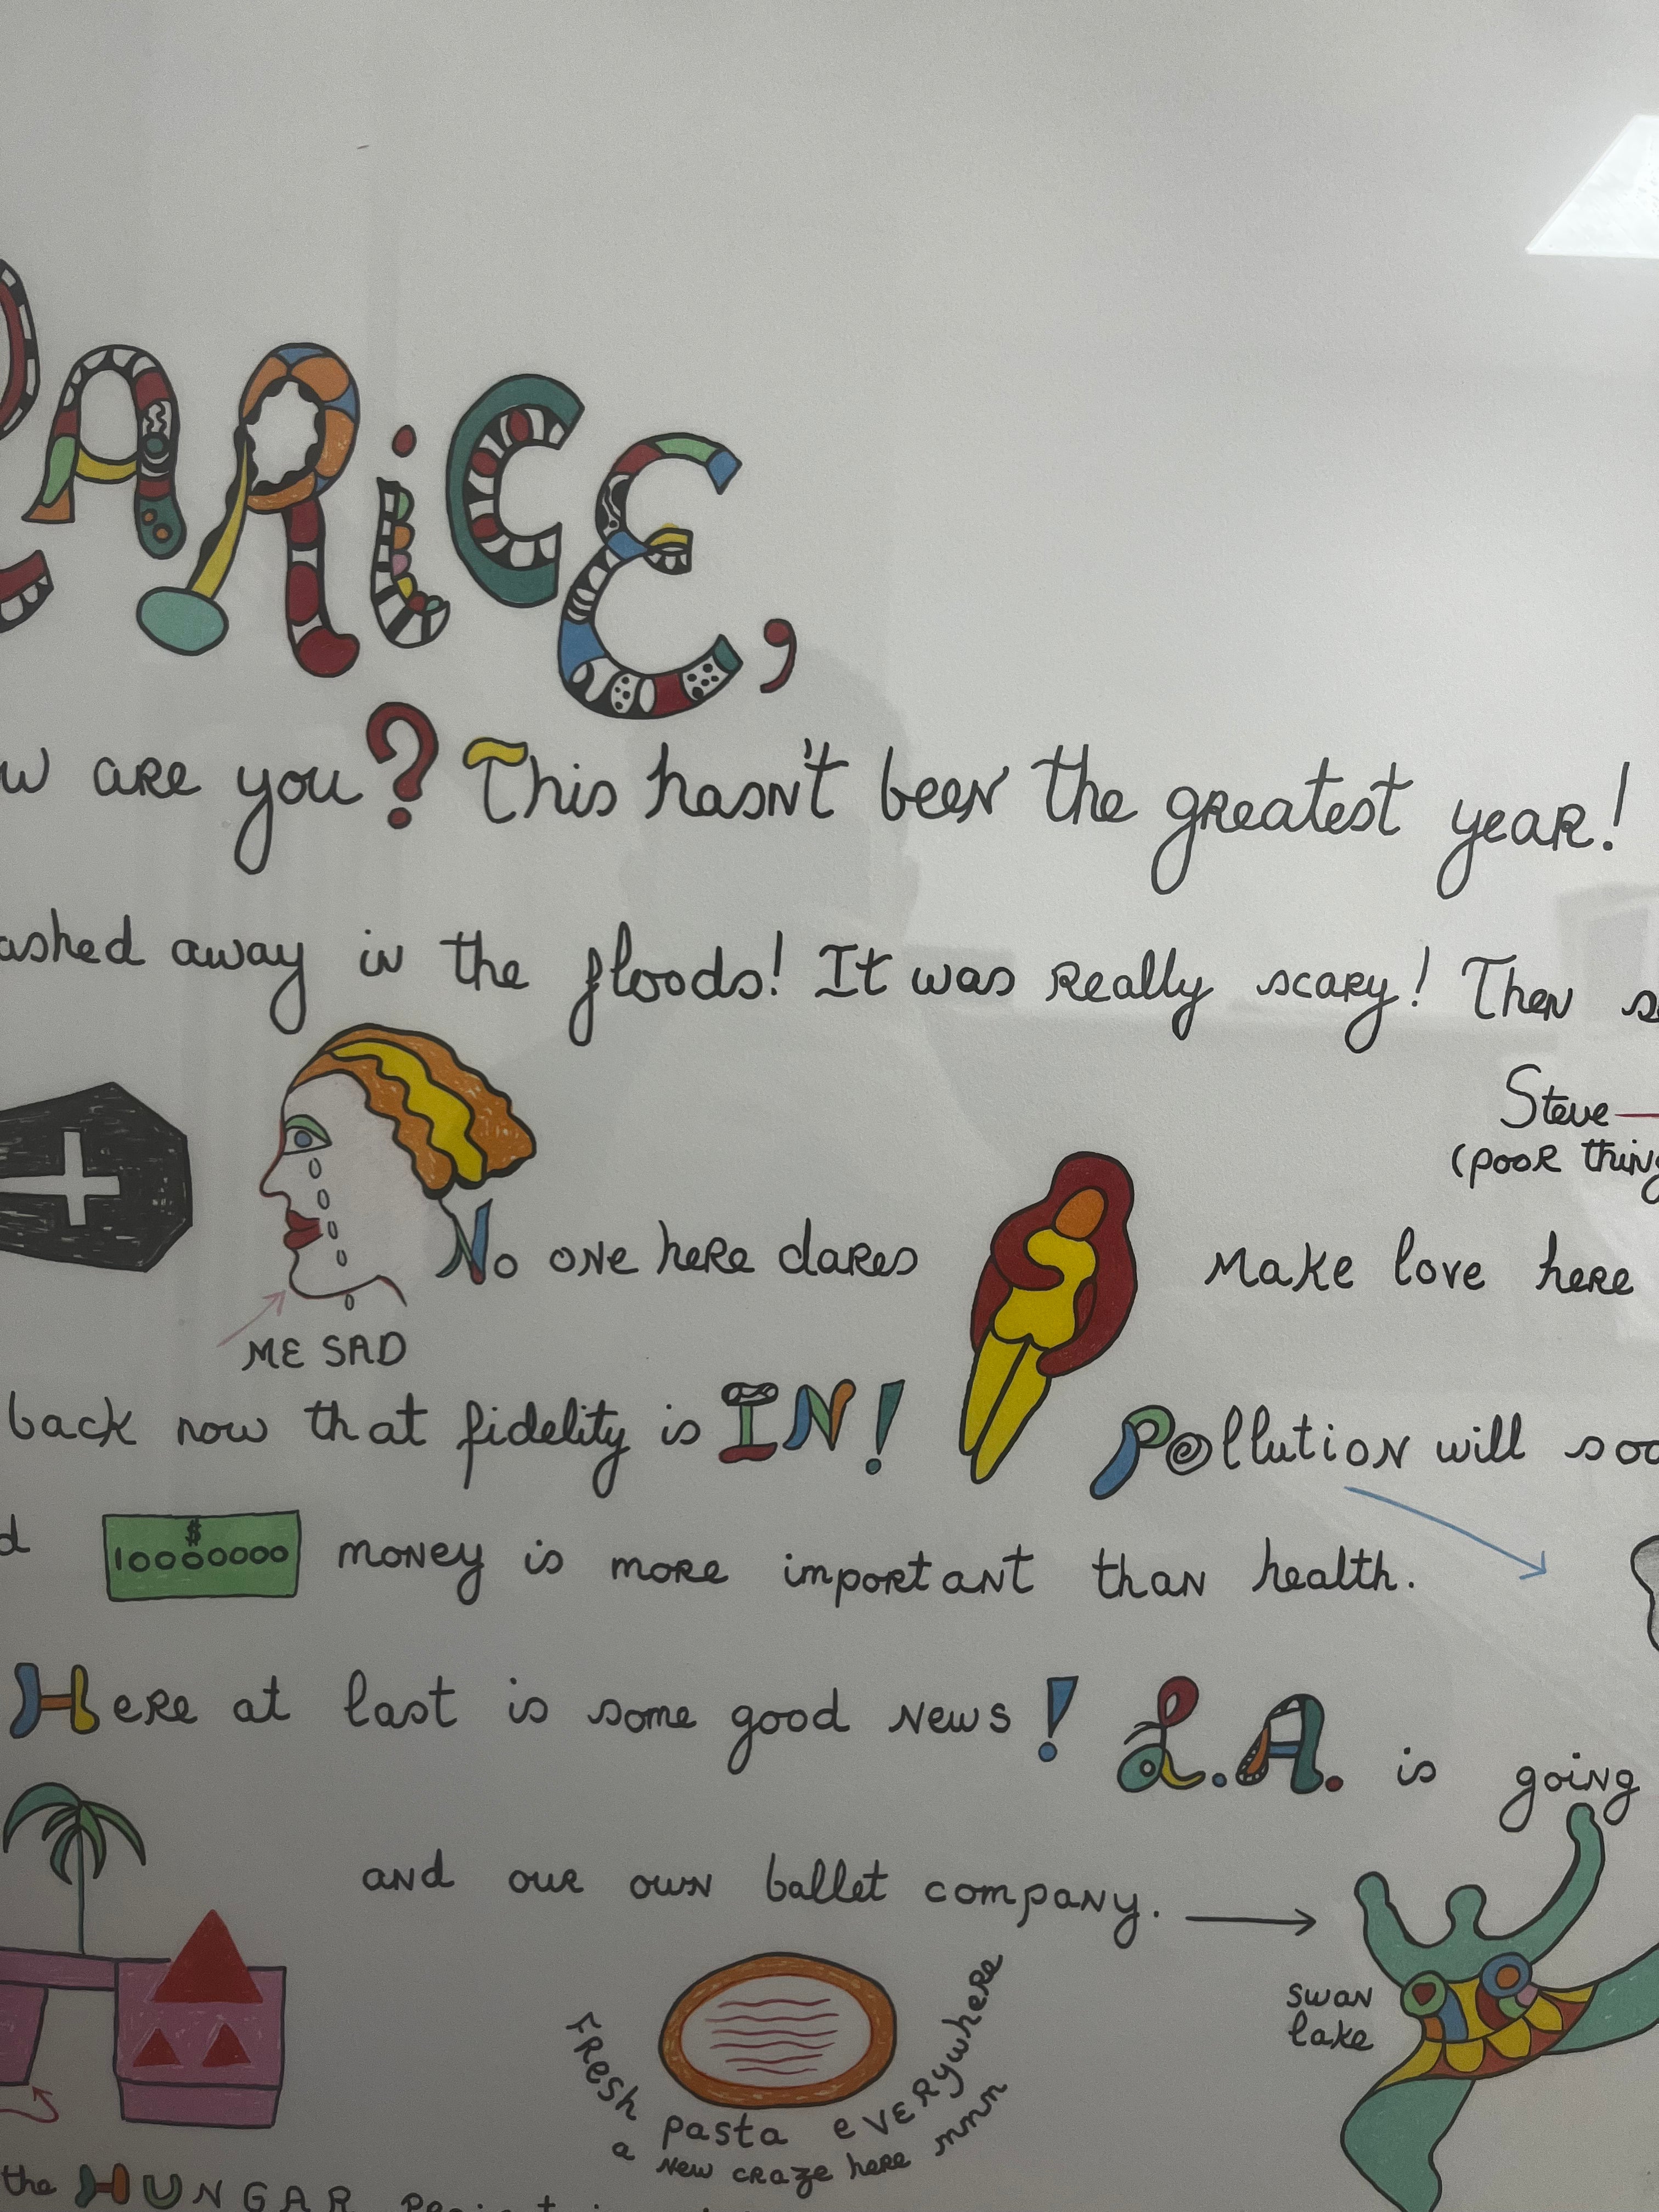 LARICE,
are you? This hasn't been the greatest year!
away in the floods! It was really scary! Then
Steve
(poor
ME SAD
No one here dares make love here
back now that fidelity is IN! Pollution will
$
10000000 money is more important than health.
Here at last is some good news! L.A. is going
and our own ballet company.
swan
lake
Fresh pasta everywhere
a new craze here mmm
the HUNGAR